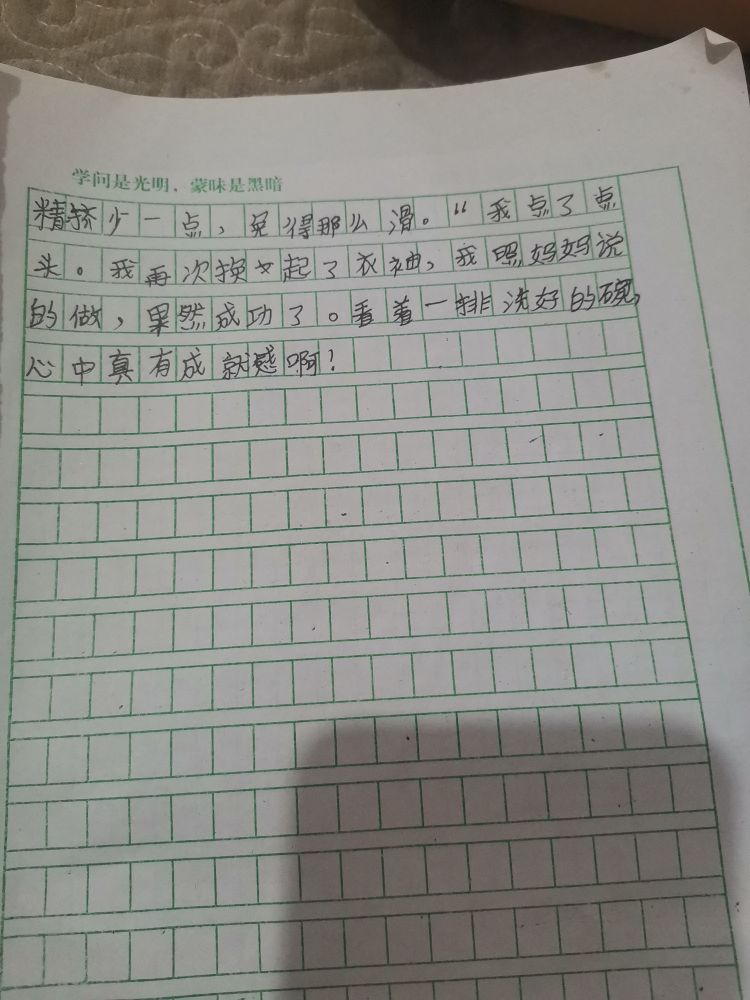 学问是光明，蒙昧是黑暗
精挤少一点，免得那么滑。“我点了点
头。我再次挽起了衣袖，我照妈妈说
的做，果然成功了。看着一排洗好的碗，
心中真有成就感啊！